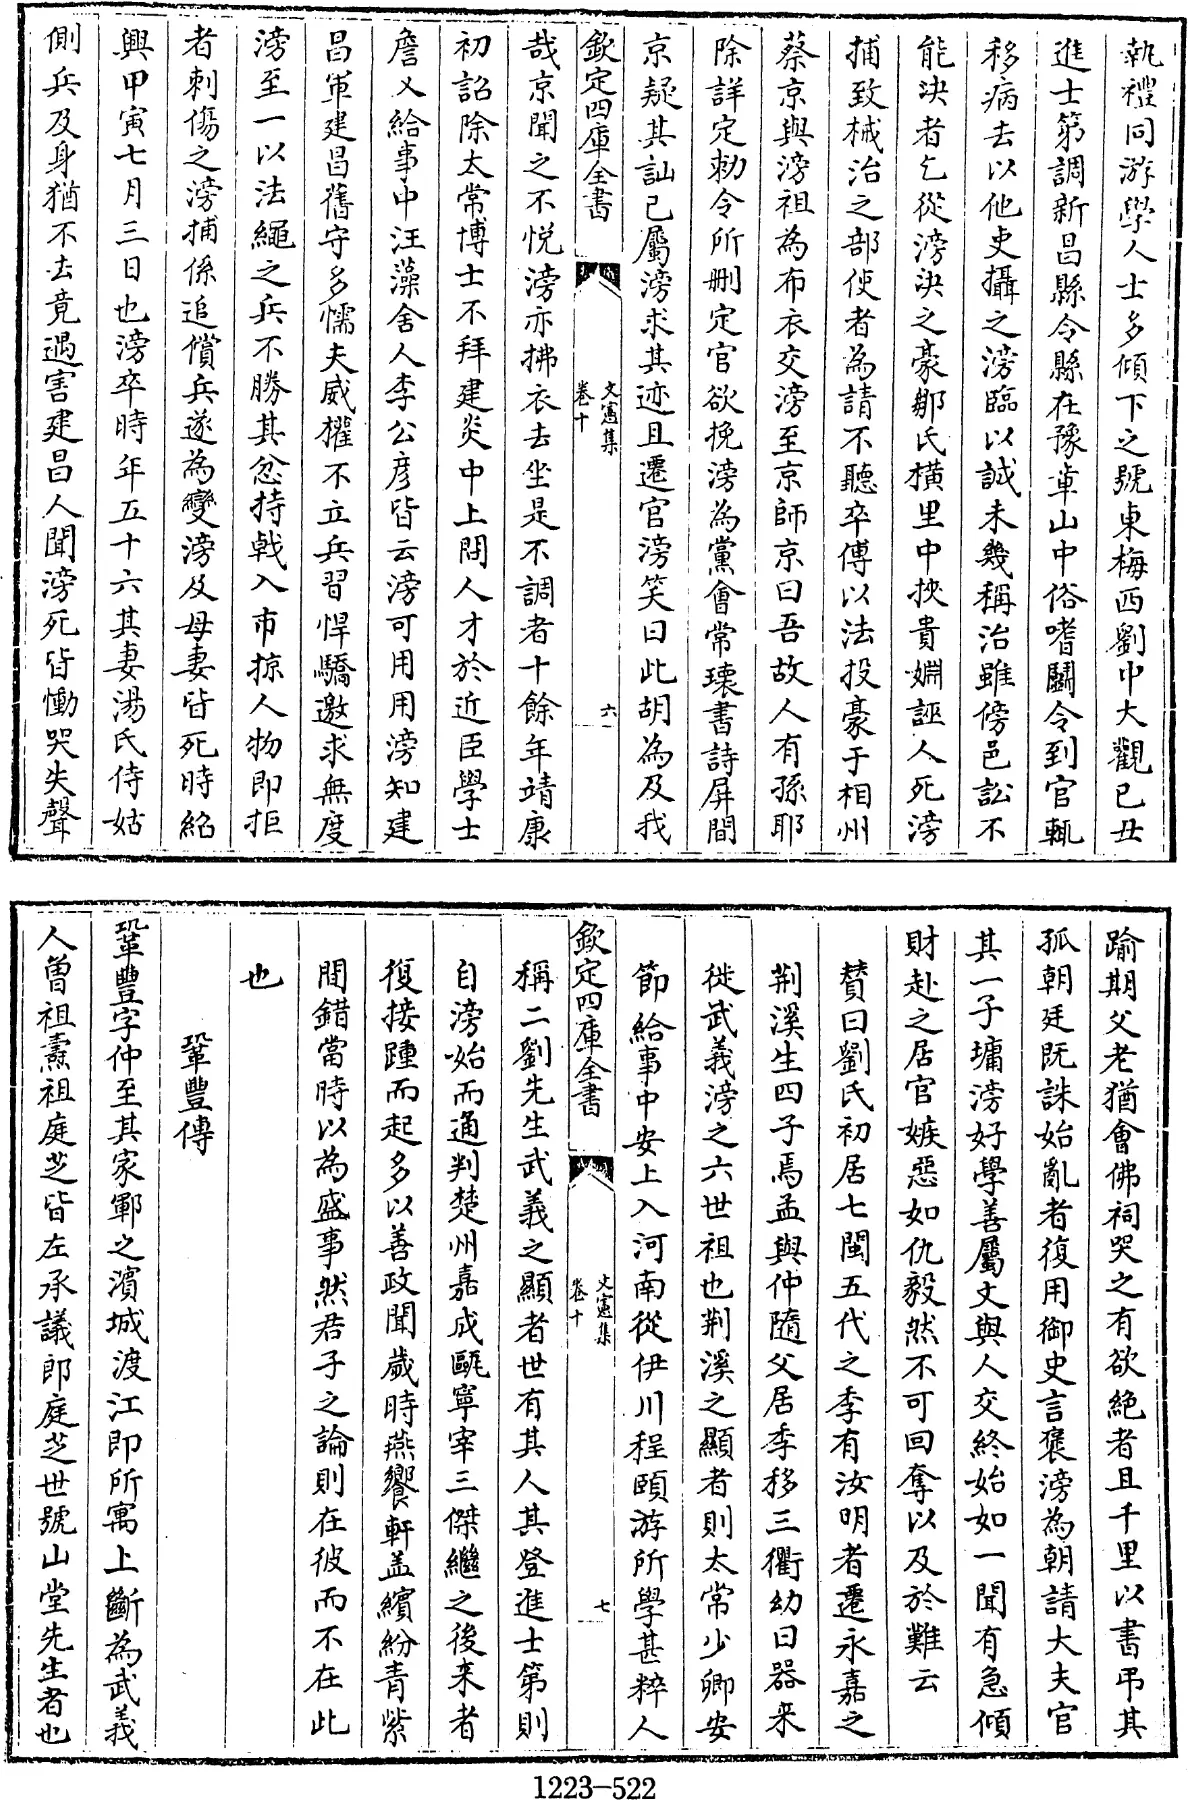 執禮同游學人士多傾下之號東梅西劉中大觀己丑
進士第調新昌縣令縣在豫章山中俗嗜鬬令到官輒
移病去以他吏攝之滂臨以誠未幾稱治雖傍邑訟不
能決者乞從滂決之豪鄒氏橫里中挾貴婣誣人死滂
捕致械治之部使者為請不聽卒傅以法投豪于相州
蔡京與滂祖為布衣交滂至京師京曰吾故人有孫耶
除詳定勅令所刪定官欲挽滂為黨會常瓌書詩屏間
京疑其訕已屬滂求其迹且遷官滂笑曰此胡為及我
欽定四庫全書
文憲集
卷十
六
哉京聞之不悅滂亦拂衣去坐是不調者十餘年靖康
初詔除太常博士不拜建炎中上問人才於近臣學士
詹乂給事中汪藻舍人李公彥皆云滂可用用滂知建
昌軍建昌舊守多懦夫威櫂不立兵習悍驕邀求無度
滂至一以法繩之兵不勝其忿持戟入市掠人物即拒
者刺傷之滂捕係追償兵遂為變滂及母妻皆死時紹
興甲寅七月三日也滂卒時年五十六其妻湯氏侍姑
側兵及身猶不去竟遇害建昌人聞滂死皆慟哭失聲
踰期父老猶會佛祠哭之有欲絕者且千里以書弔其
孤朝廷既誅始亂者復用御史言褒滂為朝請大夫官
其一子墉滂好學善屬文與人交終始如一聞有急傾
財赴之居官嫉惡如仇毅然不可回奪以及於難云
賛曰劉氏初居七閩五代之季有汝明者遷永嘉之
荆溪生四子焉孟與仲隨父居季移三衢幼曰器来
徙武義滂之六世祖也荆溪之顯者則太常少卿安
節給事中安上入河南從伊川程頤游所學甚粹人
欽定四庫全書
文憲集
卷十
七
稱二劉先生武義之顯者世有其人其登進士第則
自滂始而通判楚州嘉成甌寧宰三傑繼之後来者
復接踵而起多以善政聞歲時燕饗軒盖繽紛青紫
間錯當時以為盛事然君子之論則在彼而不在此
也
鞏豐傳
鞏豐字仲至其家鄆之濱城渡江即所寓上斷為武義
人曾祖燾祖庭芝皆左承議郎庭芝世號山堂先生者也
1223-522